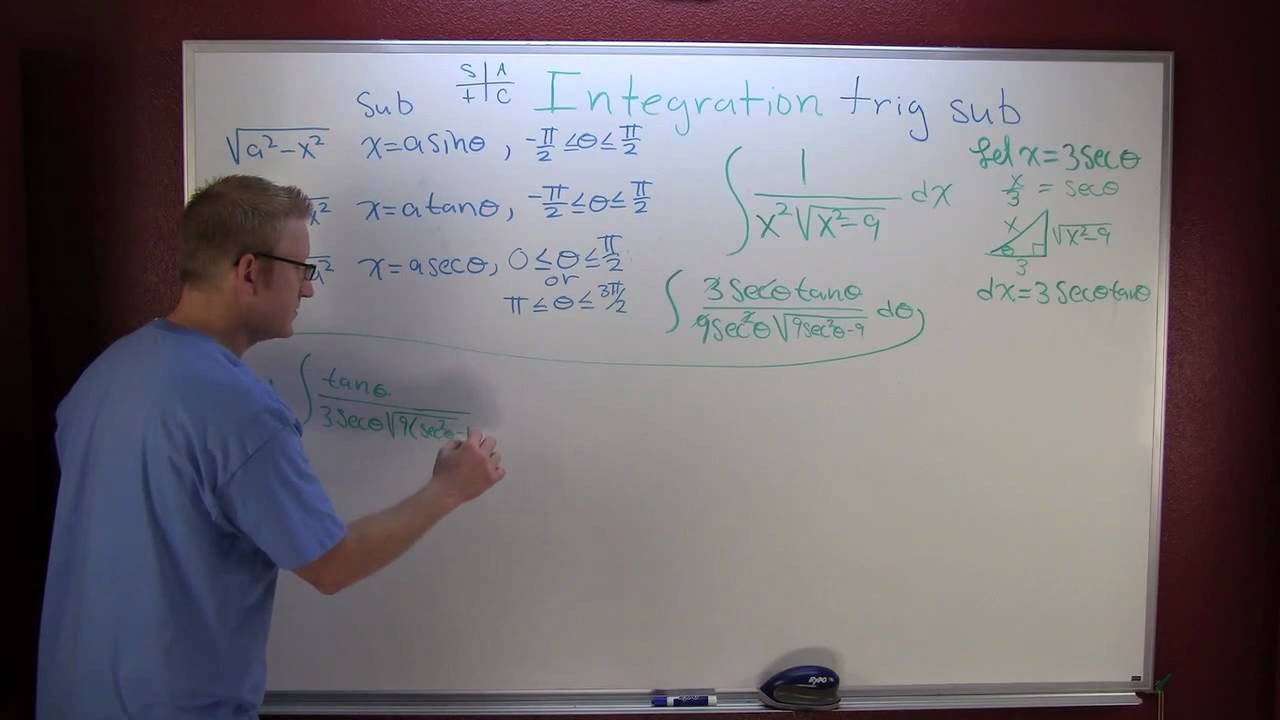 S A
T C
Integration trig sub
Sub
√a²−x² x=asinθ, -π/2 ≤θ≤ π/2
x² x=atanθ, -π/2 ≤θ≤ π/2
x² x=asecθ, 0≤θ≤ π/2
or
π≤θ≤ 3π/2
∫ 1/(x²√x²−9) dx
Let x=3secθ
x/3 = secθ
x √x²−9
θ
3
dx=3secθtanθ
∫ 3secθtanθ/(9sec²θ√9sec²θ−9) dθ
∫ tanθ/(3secθ√9(sec²θ−1
EXPO